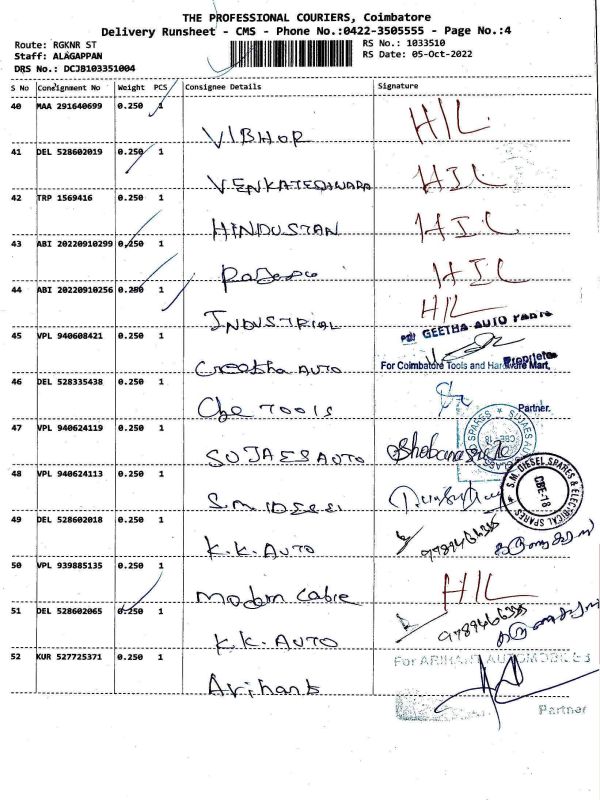 THE PROFESSIONAL COURIERS, Coimbatore
Delivery Runsheet - CMS - Phone No.:0422-3505555 - Page No.:4
Route: RGKNR ST RS No.: 1033510
Staff: ALAGAPPAN RS Date: 05-Oct-2022
DRS No.: DCJB103351004
S No Consignment No Weight PCS Consignee Details Signature
40 MAA 291640699 0.250 1
VIBHOR HIL
41 DEL 528602019 0.250 1
VENKATESHWARA HIL
42 TRP 1569416 0.250 1
HINDUSTAN HIL
43 ABI 20220910299 0.250 1
HIL
44 ABI 20220910256 0.250 1
INDUSTRIAL HIL
GEETHA AUTO PARTS
45 VPL 940608421 0.250 1
Geetha AUTO
Proprietor
For Coimbatore Tools and Hardware Mart,
46 DEL 528335438 0.250 1
Cbe TOOLS
Partner.
47 VPL 940624119 0.250 1
SUJAES AUTO Shobana
SUJAES AUTO SPARES CBE-18
48 VPL 940624113 0.250 1
S.M. DIESEL SPARES & ELECTRICAL SPARES CBE-18
49 DEL 528602018 0.250 1
K.K. AUTO
50 VPL 939885135 0.250 1
Modern Cable HIL
51 DEL 528602065 0.250 1
K.K. AUTO
52 KUR 527725371 0.250 1
For ARIHANT AUTOMOBILES
Arihant
Partner